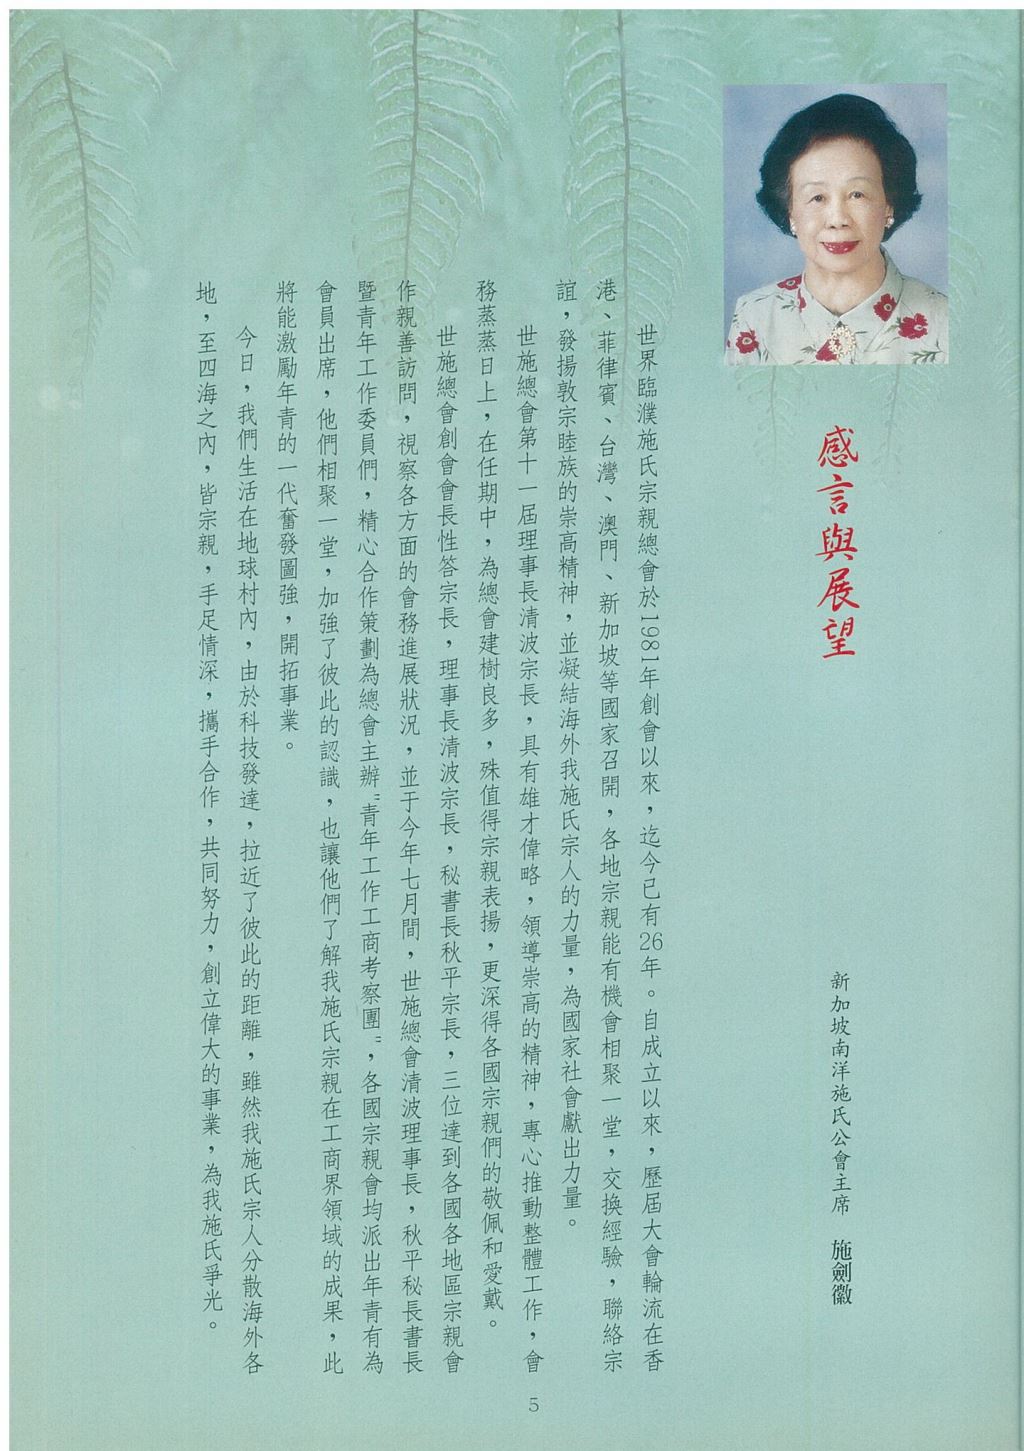 感言與展望
新加坡南洋施氏公會主席 施劍徽
世界臨濮施氏宗親總會於1981年創會以來，迄今已有26年。自成立以來，歷屆大會輪流在香
港、菲律賓、台灣、澳門、新加坡等國家召開，各地宗親能有機會相聚一堂，交換經驗，聯絡宗
誼，發揚敦宗睦族的崇高精神，並凝結海外我施氏宗人的力量，為國家社會獻出力量。
世施總會第十一屆理事長清波宗長，具有雄才偉略，領導崇高的精神，專心推動整體工作，會
務蒸蒸日上，在任期中，為總會建樹良多，殊值得宗親表揚，更深得各國宗親們的敬佩和愛戴。
世施總會創會會長性答宗長，理事長清波宗長，秘書長秋平宗長，三位達到各國各地區宗親會
作親善訪問，視察各方面的會務進展狀況，並于今年七月間，世施總會清波理事長，秋平秘長書長
暨青年工作委員們，精心合作策劃為總會主辦"青年工作工商考察團"，各國宗親會均派出年青有為
會員出席，他們相聚一堂，加強了彼此的認識，也讓他們了解我施氏宗親在工商界領域的成果，此
將能激勵年青的一代奮發圖強，開拓事業。
今日，我們生活在地球村內，由於科技發達，拉近了彼此的距離，雖然我施氏宗人分散海外各
地，至四海之內，皆宗親，手足情深，攜手合作，共同努力，創立偉大的事業，為我施氏爭光。
5